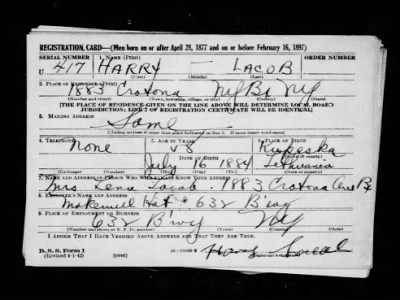 REGISTRATION CARD—(Men born on or after April 28, 1877 and on or before February 16, 1897)
SERIAL NUMBER 1. NAME (Print) ORDER NUMBER
U 417 HARRY — LACOB
(First) (Middle) (Last)
2. PLACE OF RESIDENCE (Print)
1883 Crotona NY Bx NY
(Number and street) (Town, township, village, or city) (County) (State)
[THE PLACE OF RESIDENCE GIVEN ON THE LINE ABOVE WILL DETERMINE LOCAL BOARD
JURISDICTION; LINE 2 OF REGISTRATION CERTIFICATE WILL BE IDENTICAL]
3. MAILING ADDRESS
Same
[Mailing address if other than place indicated on line 2. If same insert word same]
4. TELEPHONE
None 58
DATE OF BIRTH
July 16 1884 Lithuania
7. NAME AND ADDRESS OF PERSON WHO WILL ALWAYS KNOW YOUR ADDRESS
Mrs. Lena Lacob - 1883 Crotona Ave Bx
8. EMPLOYER'S NAME AND ADDRESS
Hat - 632 B'way
9. PLACE OF EMPLOYMENT OR BUSINESS
632 B'way NY
(Number and street or R. F. D. number) (Town) (County) (State)
I AFFIRM THAT I HAVE VERIFIED ABOVE ANSWERS AND THAT THEY ARE TRUE.
D. S. S. Form 1
(Revised 4-1-42) (over)
Harry Lacob